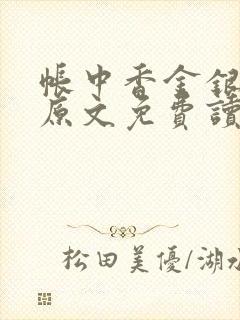 帳中香金銀
原文免費讀
松田美優/湖水